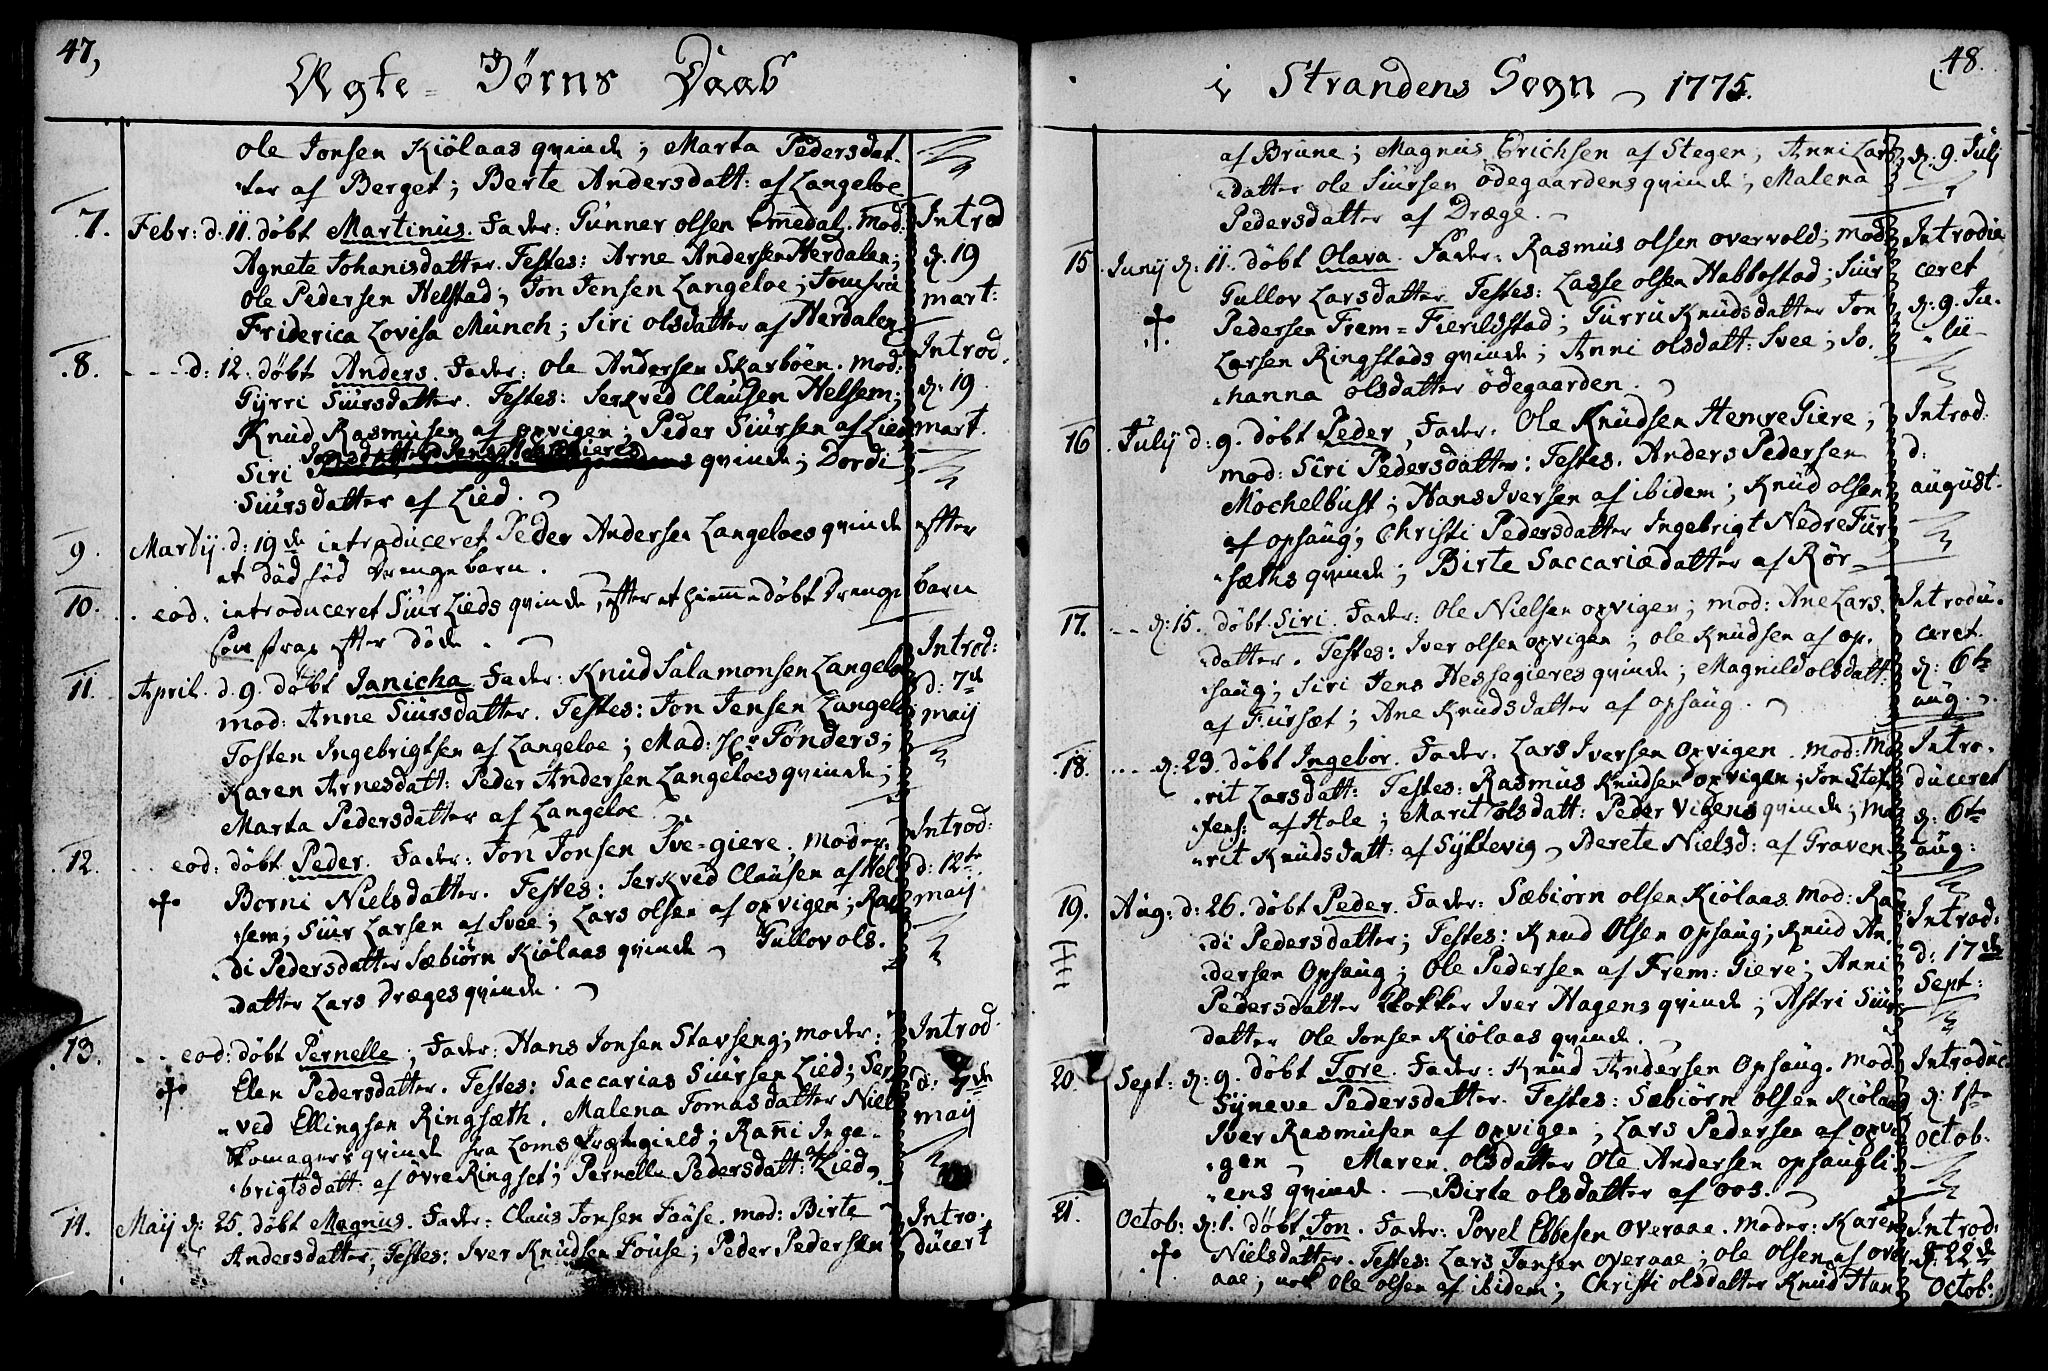 47,
Ægte-Börns Daab
ole Jonsen Kiölaas qvinde; Marta Pedersdat-
ter af Berget; Berte Andersdatt: af Langeloe
7. Febr: d. 11. döbt Martinus. Fader: Gunner olsen Emedal. Mod:
Agnete Johanisdatter. Testes: Arne Andersen Herdalen;
ole Pedersen Helstad; Jon Jensen Langeloe; Jomfrue
Friderica Lovisa Münch; Siri olsdatter af Herdalen
Introd
d. 19
mart:
8. - - - d: 12. döbt Anders. Fader: ole Andersen Skarböen. mod:
Gyrri Siursdatter. Testes: Serkved Clausen Helsem;
Knud Rasmusen af opvigen; Peder Siursen af Lied
Siri Jonsdatter Jens Hessegieres qvinde; Dordi
Siursdatter af Lied.
Introd.
d. 19
mart.
9. Martij. d: 19de introduceret Peder Andersen Langeloes qvinde efter
et död föd drenge barn.
10. . . eod: introduceret Siur Lieds qvinde, efter et hiemmedöbt drenge barn
som strax efter döde.
11. April. d. 9. döbt Janicha. Fader: Knud Salamonsen Langeloe
mod: Anne Siursdatter. Testes: Jon Jensen Langeloe
Tosten Ingebrigtsen af Langeloe; Mad: Hr Tönders;
Karen Arnesdatt: Peder Andersen Langeloes qvinde;
Marta Pedersdatter af Langeloe.
Introd:
d: 7de
maij
12. . . eod: döbt Peder. Fader: Jon Jonsen Ive-giere, Moder:
Borni Nielsdatter. Testes: Serkved Clausen af Hel
sem; Siur Larsen af Svee; Lars olsen af opvigen; Ra
di Pedersdatter Sæbiörn Kiölaas qvinde - Gullov ols.
datter Lars Dræges qvinde.
Introd:
d: 12te
maij
13. . . eod: döbt Pernelle; Fader: Hans Jonsen Stavseng; moder:
Elen Pedersdatter. Testes: Saccarias Siursen Lied; Ser
ved Ellingsen Ringsæth. Malena Tomasdatter Niels
Skomagers qvinde fra Loms Præstegield; Rani Inge-
brigtsdatt: af övre Ringset; Pernelle Pedersdatt: Lied.
Introd.
d: 7de
maij
14. Maij d: 25. döbt Magnus. Fader: Claus Jonsen Fause. mod: Birte
Andersdatter, Testes: Iver Knudsen Fouse; Peder Pedersen
Intro-
ducert
48.
i Strandens Sogn 1775.
af Brune; Magnus Erichsen af Stegen; Anni Lars
datter ole Siursen ödegaardens qvinde; Malena
Pedersdatter af Dræge.
d. 9. Julij
15. Junij d: 11. döbt Olava. Fader: Rasmus olsen overvold; mod
Gullov Larsdatter. Testes: Lasse olsen Habbostad; Siur
Pedersen Frem-Fierildstad; Gurru Knudsdatter Jon
Larsen Ringstads qvinde; Anni olsdatt: Svee; Jo.
hanna olsdatter ödegaarden.
Introdu
ceret
d: 9. Ju-
lii-
16. Julij d: 9. döbt Peder, Fader. Ole Knudsen Hemre Giere;
mod: Siri Pedersdatter: Testes. Anders Pedersen
Mochelbust; Hans Iversen af ibidem; Knud olsen
af opsaug; Christi Pedersdatter Ingebrigt Nedre Fur
sæths qvinde; Birte Saccariædatter af Rör-
Introd:
d:
august.
17. - - d: 15. döbt Siri. Fader: Ole Nielsen opvigen; mod: Ane Lars.
datter. Testes: Iver olsen opvigen; ole Knudsen af op.
saug; Siri Jens Hessegieres qvinde; Magnild olsdatt:
af Fursæt; Ane Knudsdatter af opsaug.
Introdu-
ceret
d: 6te
aug.
18. - - - d: 23. döbt Ingebor. Fader: Lars Iversen opvigen. mod: Ma
rit Larsdatt: Testes: Rasmus Knudsen opvigen; Jon Stef
fens: af Hole; Marit olsdatt: Peder Vigens qvinde; Ma
rit Knudsdatt: af Syltevig - Berete Nielsd: af Graven.
Intro.
duceret
d: 6te
aug:
19. Aug: d: 26. döbt Peder. Fader: Sæbiörn olsen Kiölaas. mod: Ra
di Pedersdatter; Testes: Knud Olsen opsaug; Knud An.
dersen opsaug; Ole Pedersen af Frem: Giere; Anni
Pedersdatter Klokker Iver Hagens qvinde; Astri Siurs
datter Ole Jonsen Kiölaas qvinde.
Introd:
d: 17de
Sept:
20. Sept: d: 9. döbt Tore. Fader: Knud Andersen Opsaug. mod
Syneve Pedersdatter. Testes: Sæbiörn olsen Kiölaas
Iver Rasmusen af opvigen; Lars Pedersen af opvi
gen - Maren olsdatter Ole Andersen opsaugli.
ens qvinde. - Birte olsdatter af oos.
Introduc.
d: 1ste
octob:
21. Octob: d: 1. döbt Jon. Fader: Povel Ebbesen overaae. moder: Karen
Nielsdatter. Testes: Lars Jansen overaae; ole olsen af over
aae; nok ole olsen af ibidem; Christi olsdatter Knud Han
Introd:
d. 22de
octob: